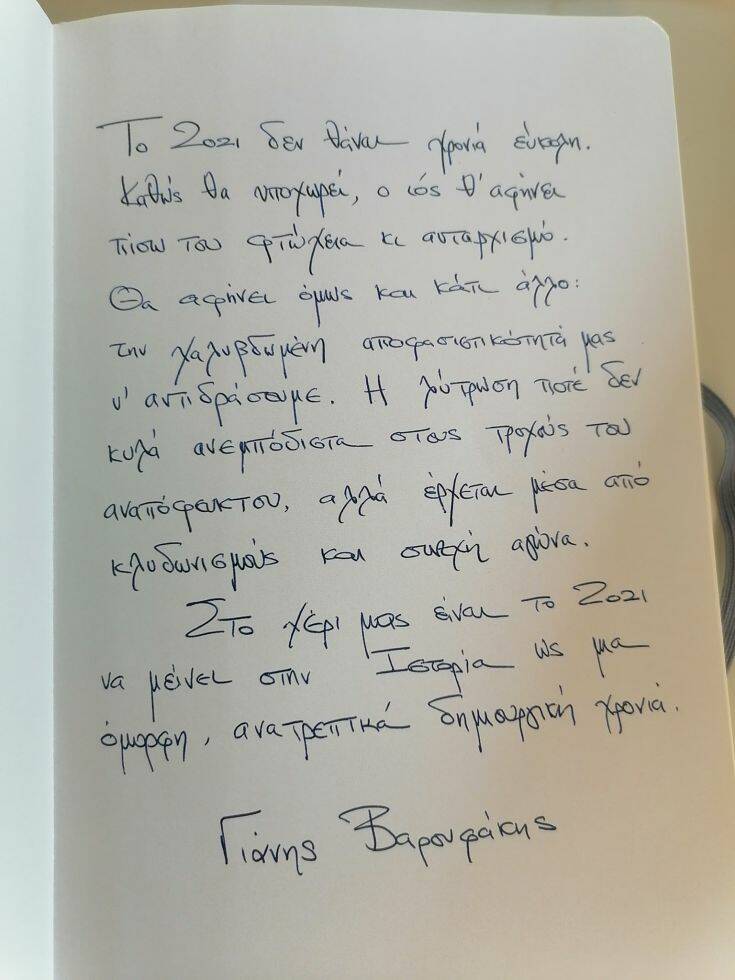 Το 2021 δεν θάναι χρονιά εύκολη.
Καθώς θα υποχωρεί, ο ιός θ' αφήνει
πίσω του φτώχεια κι αυταρχισμό.
Θα αφήνει όμως και κάτι άλλο:
την χαλυβδωμένη αποφασιστικότητά μας
ν' αντιδράσουμε. Η λύτρωση ποτέ δεν
κυλά ανεμπόδιστα στους τροχούς του
αναπόφευκτου, αλλά έρχεται μέσα από
κλυδωνισμούς και συνεχή αγώνα.
Στο χέρι μας είναι το 2021
να μείνει στην Ιστορία ως μια
όμορφη, ανατρεπτικά δημιουργική χρονιά.
Γιάννης Βαρουφάκης